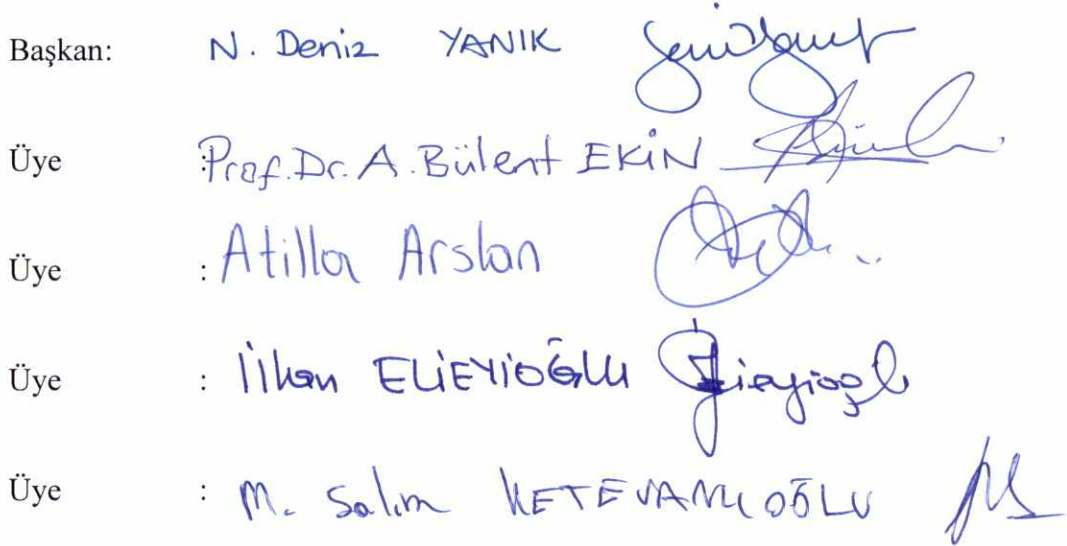 Başkan: N. Deniz YANIK
Üye : Prof. Dr. A. Bülent EKİN
Üye : Atilla Arslan
Üye : İlhan ELİEYİOĞLU
Üye : M. Salim KETEVANLIOĞLU